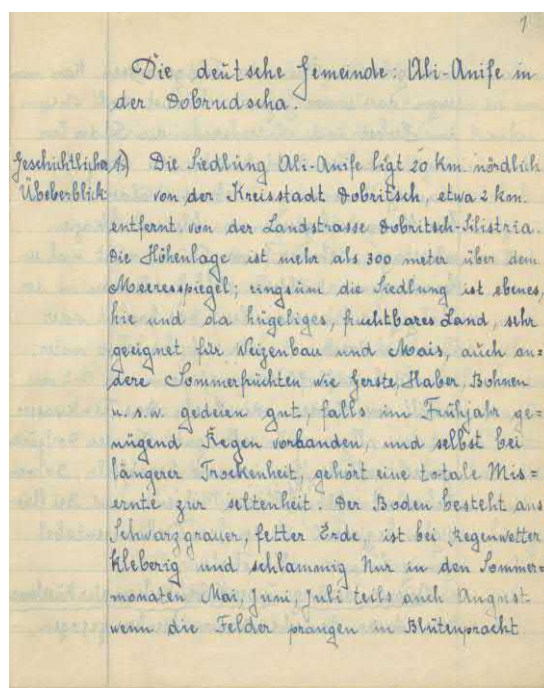 1
Die deutsche Gemeinde: Ali-Anife in
der Dobrudscha.
Geschichtlicher 1) Die Siedlung Ali-Anife ligt 20 km. nördlich
Übeberblick von der Kreisstadt Dobritsch, etwa 2 km.
entfernt von der Landstrasse Dobritsch-Silistria.
Die Höhenlage ist mehr als 300 meter über dem
Meeresspiegel; ringsüm die Siedlung ist ebenes,
hie und da hügeliges, fruchtbares Land, sehr
geeignet für Weizenbau und Mais, auch an=
dere Sommerfrüchten wie Gerste, Haber, Bohnen
u.s.w. gedeien gut, falls im Frühjahr ge=
nügend Regen vorhanden, und selbst bei
längerer Trockenheit, gehört eine totale Mis=
ernte zur seltenheit. Der Boden besteht aus
Schwarzgrauer, fetter Erde, ist bei Regenwetter
kleberig und schlammig Nur in den Sommer=
monaten Mai, Juni, Juli teils auch August
wenn die Felder prangen in Blütenpracht